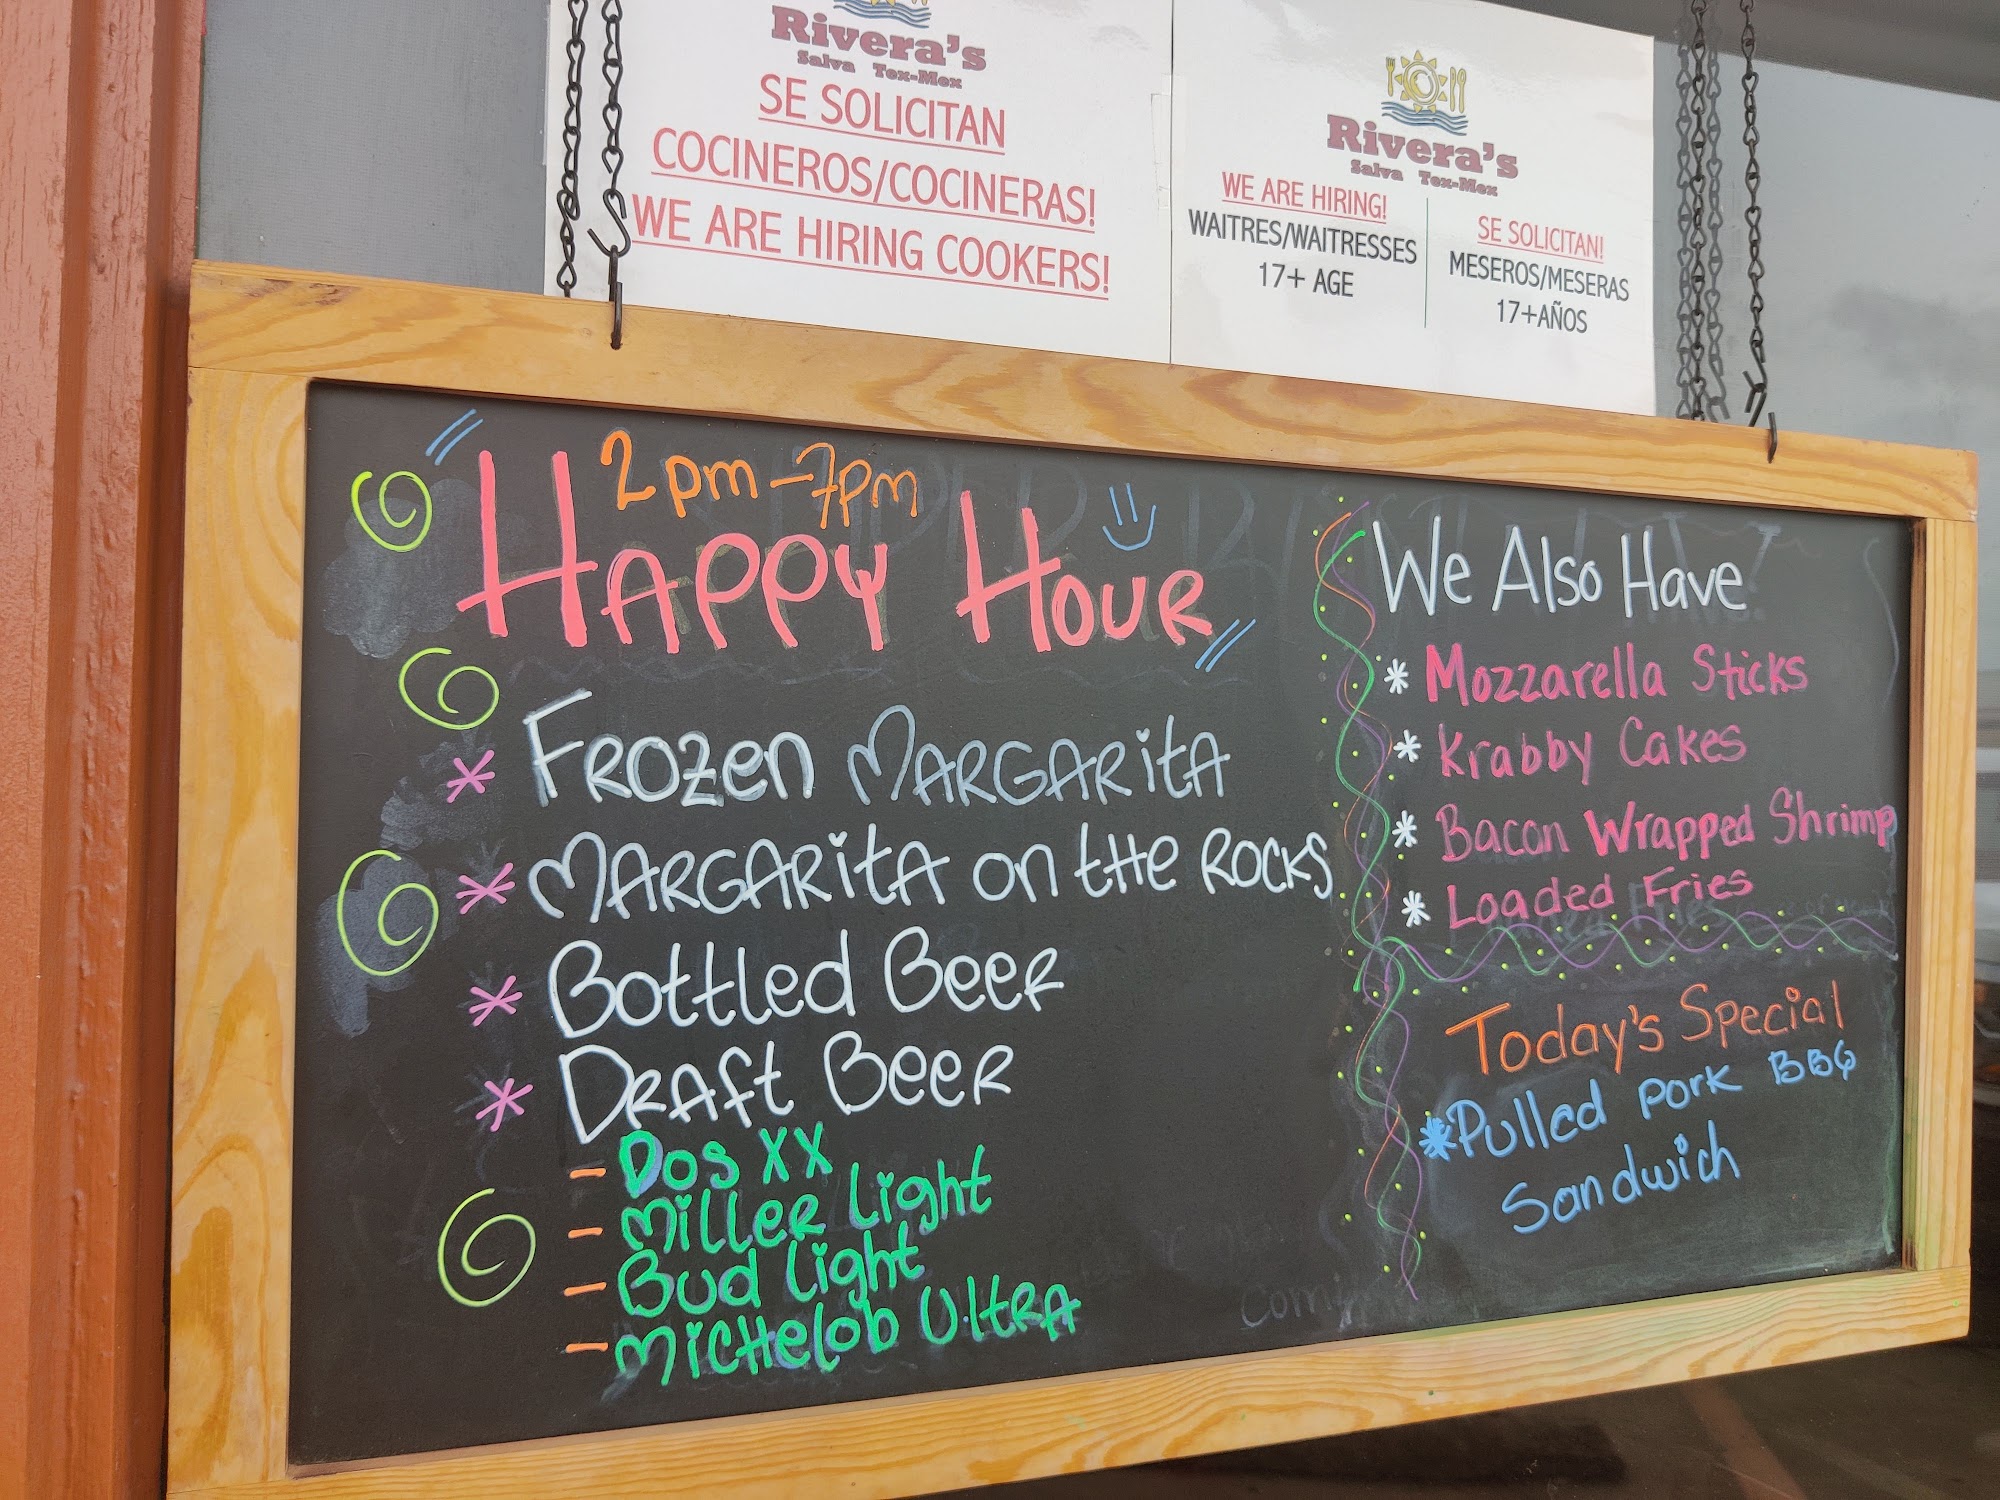 Rivera's
Salva Tex-Mex
SE SOLICITAN
COCINEROS/COCINERAS!
WE ARE HIRING COOKERS!
Rivera's
Salva Tex-Mex
WE ARE HIRING!
WAITRES/WAITRESSES
17+ AGE
SE SOLICITAN!
MESEROS/MESERAS
17+AÑOS
2pm-7pm
HAPPY HOUR
* FROZEN MARGARITA
* MARGARITA ON THE ROCKS
* Bottled BEER
* DRAFT BEER
- DOS XX
- MILLER Light
- BUD Light
- MICHELOB ULTRA
We Also Have
* Mozzarella Sticks
* Krabby Cakes
* Bacon Wrapped Shrimp
* Loaded Fries
Today's Special
*Pulled Pork BBQ
Sandwich